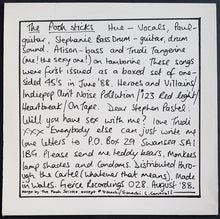 The Pooh Sticks Hue - Vocals, Paul-
guitar, Stephanie Bass Drum - guitar, drum
sound. Alison - bass and Trudi Tangerine
(mie! the sexy one!) on tamborine. These songs
were first issued as a boxed set of one-
sided 45's in June '88. Heroes and Villains/
Indiepop Ain't Noise Pollution/ 1:23 Red Light/
Heartbreak/ On Tape. Dear Stephen Pastel
Will you have sex with me? love Trudi
XXX Everybody else can just write me
love letters to P.O. Box 29 Swansea SA1
1BG Please send me teddy bears, Monkees
lamp Shades and Condoms. Distributed through
the Cartel (whatever that means). Made
in Wales. Fierce Recordings 028. August '88.
Songs by The Pooh Sticks except